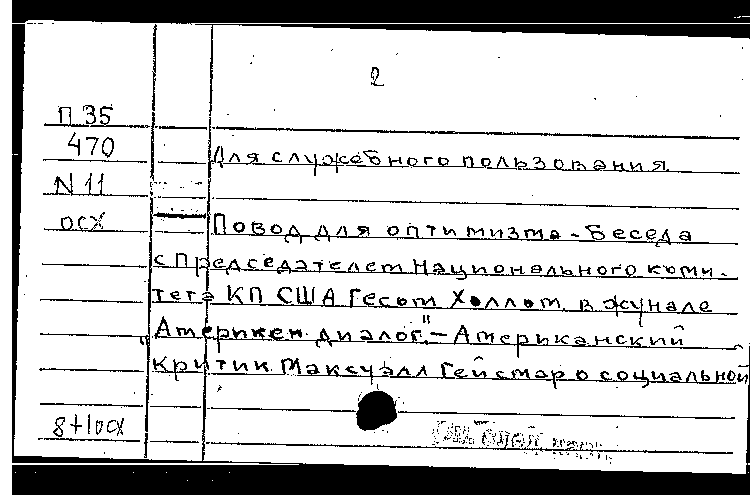 2
П 35
470
Для служебного пользования
N 11
осх
Повод для оптимизма - Беседа
с Председателем Национального коми-
тета КП США Гесом Холлом в жунале
"Америкен диалог". - Американский
критик Максуэлл Гейсмар о социальной
8+1осх